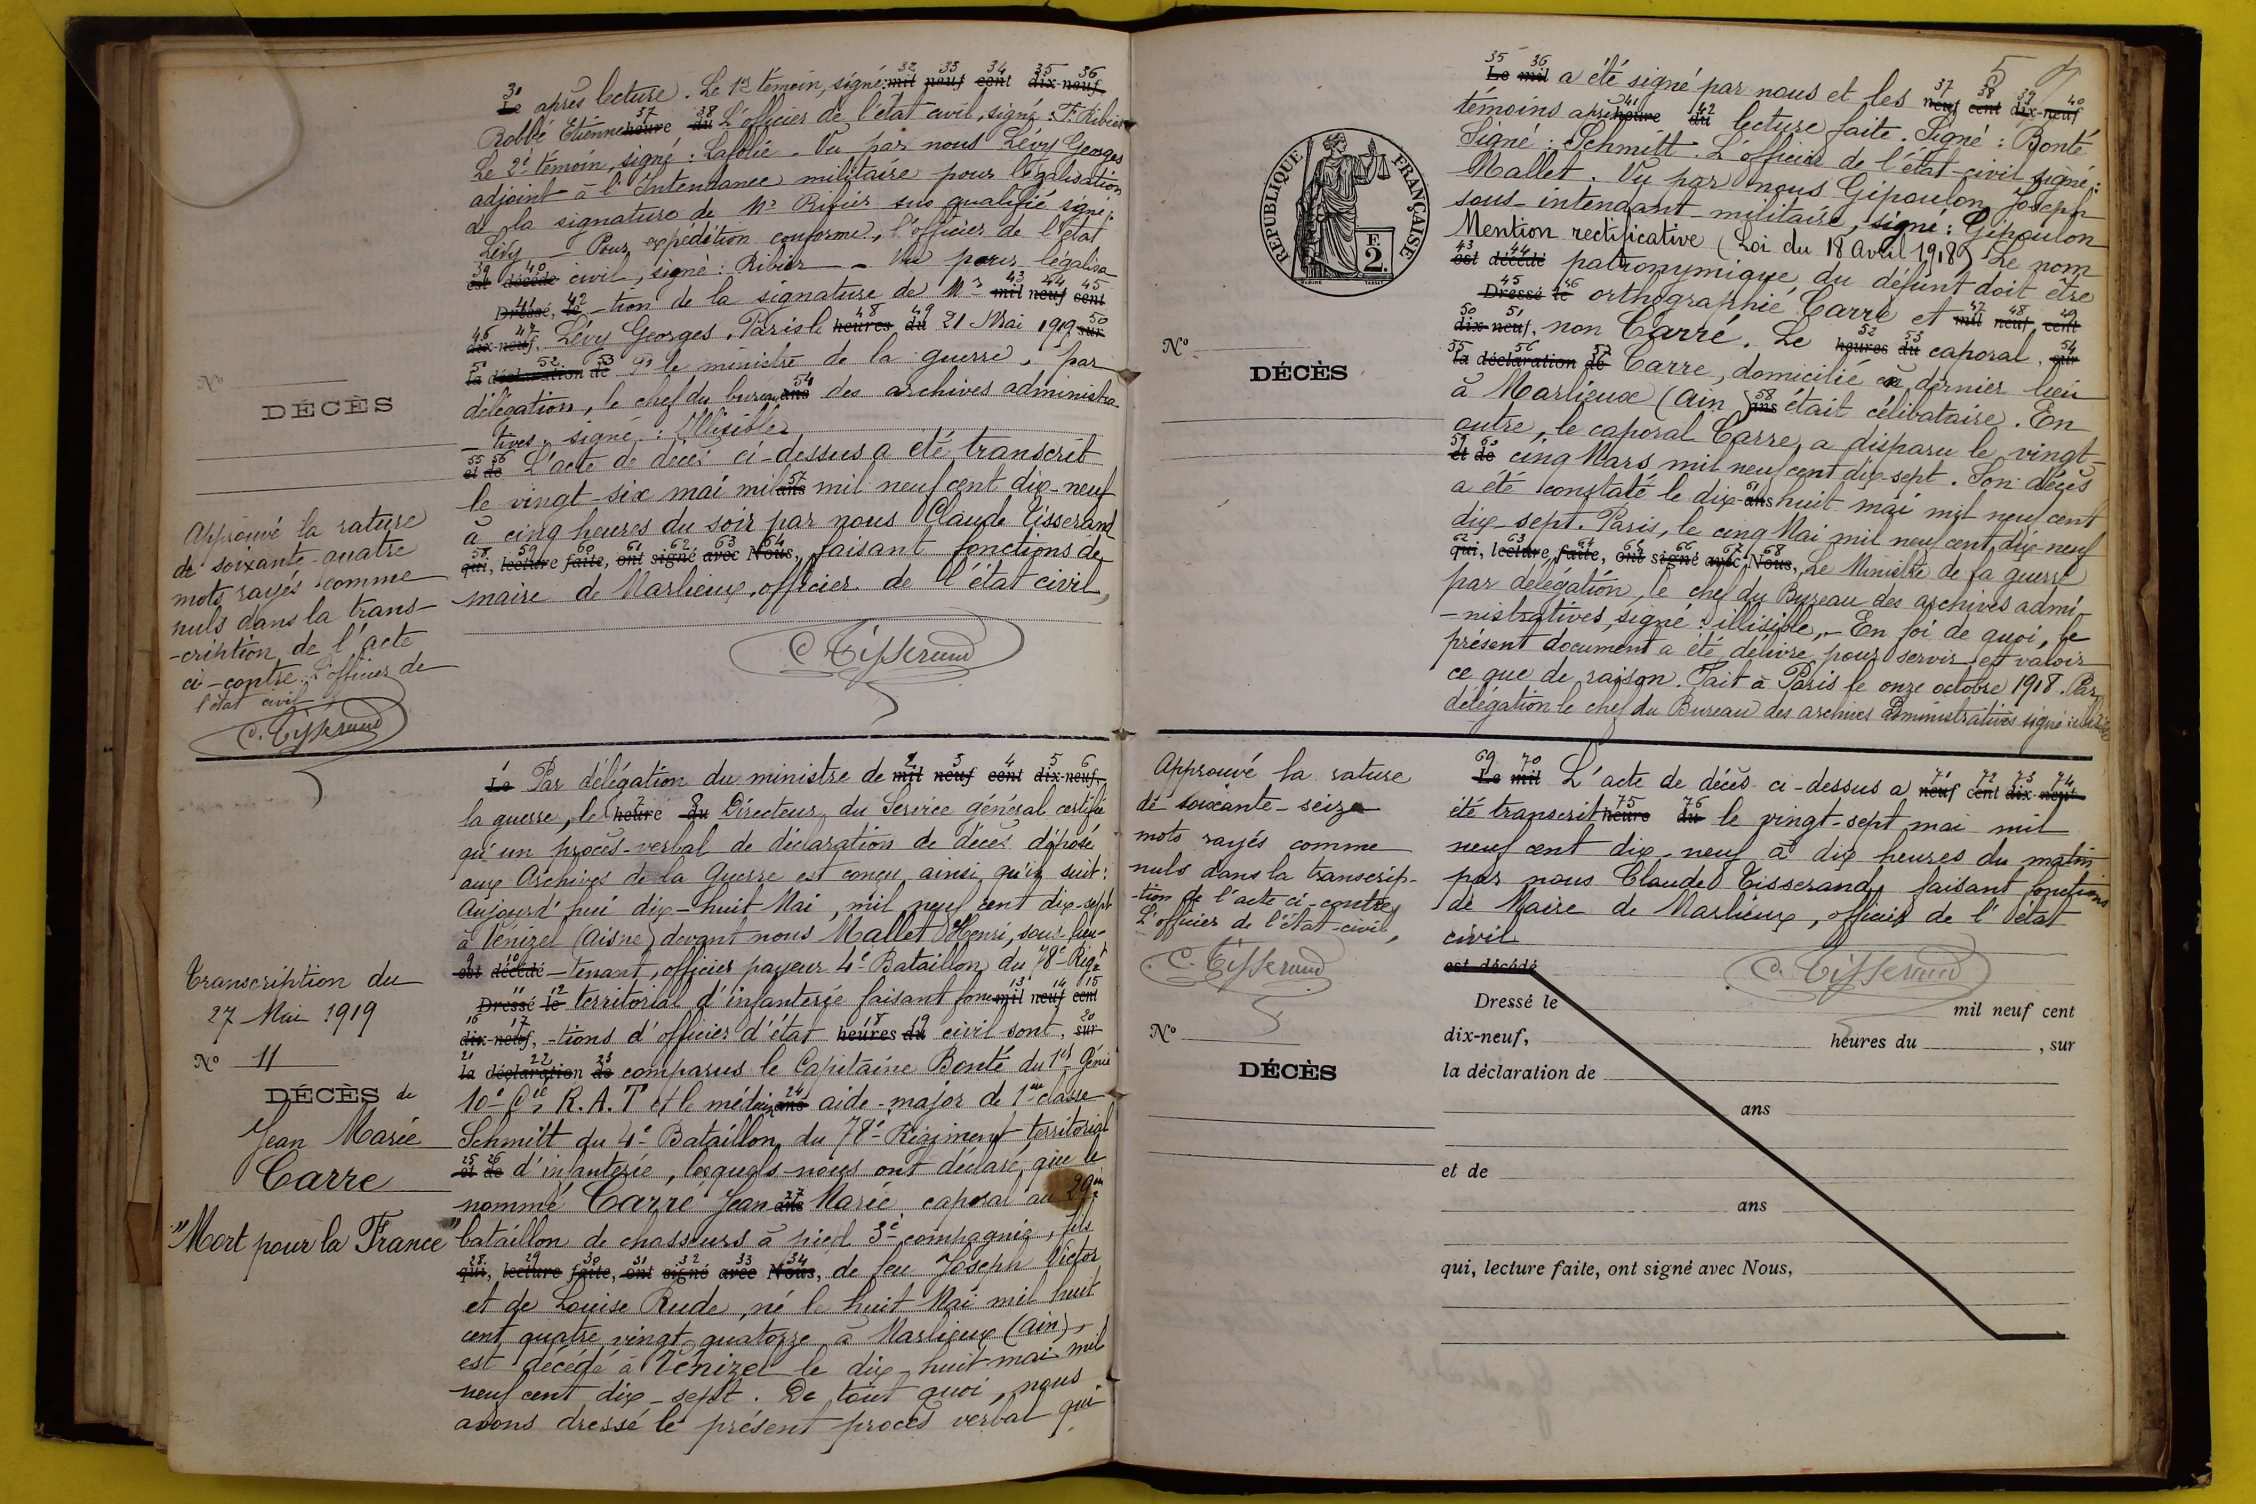 30 32 33 34 35 36
Le après lecture. Le 1er témoin, signé: mil neuf cent dix-neuf,
37 38
Robbé Etienne heure du L'officier de l'état civil, signé: F. Ribier
Le 2e témoin, signé: Lafolie. Vu par nous Lévy Georges
adjoint à l'Intendance militaire pour légalisation
de la signature de Mr Ribier sus qualifié signé:
Lévy — Pour expédition conforme, l'officier de l'état
39 40
est décédé civil, signé: Ribier — Vu pour légalisa
41 42 43 44 45
Dressé, le -tion de la signature de Mr mil neuf cent
46 47 48 49 50
dix-neuf, Lévy Georges. Paris le heures du 21 Mai 1919 sur
51 52 53
la déclaration de Pr le ministre de la guerre, par
54
délégation, le chef du bureau ans des archives administra
-tives, signé: Illisible
55 56
et de L'acte de décès ci-dessus a été transcrit
57
le vingt-six mai mil ans mil neuf cent dix-neuf
à cinq heures du soir par nous Claude Tisserand
58 59 60 61 62 63 64
qui, lecture faite, ont signé avec Nous, faisant fonctions de
maire de Marlieux, officier de l'état civil,
C. Tisserand
No
DÉCÈS
Approuvé la rature
de soixante-quatre
mots rayés comme
nuls dans la trans-
-cription de l'acte
ci-contre. L'officier de
l'état civil
C. Tisserand
Transcription du
27 Mai 1919
No 11
DÉCÈS de
Jean Marie
Carre
"Mort pour la France"
1 2 3 4 5 6
Le Par délégation du ministre de mil neuf cent dix-neuf,
7 8
la guerre, le heure du Directeur du Service général certifie
qu'un procès-verbal de déclaration de décès déposé
aux Archives de la Guerre est conçu ainsi qu'il suit:
Aujourd'hui dix-huit Mai, mil neuf cent dix-sept
à Vénizel (Aisne) devant nous Mallet Henri, sous-lieu-
9 10
est décédé -tenant, officier payeur 4e Bataillon du 78e Rigt
11 12 13 14 15
Dressé le territorial d'infanterie faisant fonc mil neuf cent
16 17 18 19 20
dix-neuf, -tions d'officier d'état heures du civil sont, sur
21 22 23
la déclaration de comparus le Capitaine Bonté du 1er Génie
24
10e Cie R.A.T et le médecin ans aide-major de 1ère classe
Schmitt du 4e Bataillon du 78e Régiment territorial
25 26
et de d'infanterie, lesquels nous ont déclaré que le
27
nommé Carré Jean ans Marie caporal au 29me
bataillon de chasseurs à pied 3e compagnie, fils
28 29 30 31 32 33 34
qui, lecture faite, ont signé avec Nous, de feu Joseph Victor
et de Louise Rude, né le huit Mai mil huit
cent quatre vingt quatorze à Marlieux (Ain),
est décédé à Vénizel le dix-huit mai mil
neuf cent dix-sept. De tout quoi, nous
avons dressé le présent procès verbal qui
5
35 36 37 38 39 40
Le mil a été signé par nous et les neuf cent dix-neuf
41 42
témoins après heure du lecture faite. Signé: Bonté
Signé: Schmitt. L'officier de l'état-civil signé:
Mallet. Vu par nous Gipoulon Joseph
sous-intendant militaire, signé: Gipoulon
Mention rectificative (Loi du 18 avril 1918) Le nom
43 44
est décédé patronymique du défunt doit être
45 46
Dressé le orthographié Carre et mil neuf cent
47 48 49
50 51
dix-neuf, non Carré. Le heures du caporal, sur
52 53 54
55 56 57
la déclaration de Carre, domicilié en dernier lieu
58
à Marlieux (Ain) ans était célibataire. En
outre, le caporal Carre, a disparu le vingt-
59 60
et de cinq Mars mil neuf cent dix-sept. Son décès
61
a été constaté le dix-ans huit mai mil neuf cent
dix-sept. Paris, le cinq Mai mil neuf cent dix-neuf
62 63 64 65 66 67 68
qui, lecture, faite, ont signé avec Nous, Le Ministre de la guerre
par délégation, le chef du Bureau des archives admi-
-nistratives, signé: illisible, — En foi de quoi, le
présent document a été délivré pour servir et valoir
ce que de raison. Fait à Paris le onze octobre 1918. Par
délégation le chef du Bureau des archives administratives signé: illisible
RÉPUBLIQUE FRANÇAISE
F.
2.
No
DÉCÈS
Approuvé la rature
de soixante-seize
mots rayés comme
nuls dans la transcrip-
-tion de l'acte ci-contre,
L'officier de l'état-civil,
C. Tisserand
No
DÉCÈS
69 70 71 72 73 74
Le mil L'acte de décès ci-dessus a neuf cent dix-neuf
75 76
été transcrit heure du le vingt-sept mai mil
neuf cent dix-neuf à dix heures du matin
par nous Claude Tisserand, faisant fonctions
de Maire de Marlieux, officier de l'état
civil
est décédé
C. Tisserand
Dressé le mil neuf cent
dix-neuf, heures du , sur
la déclaration de
ans
et de
ans
qui, lecture faite, ont signé avec Nous,